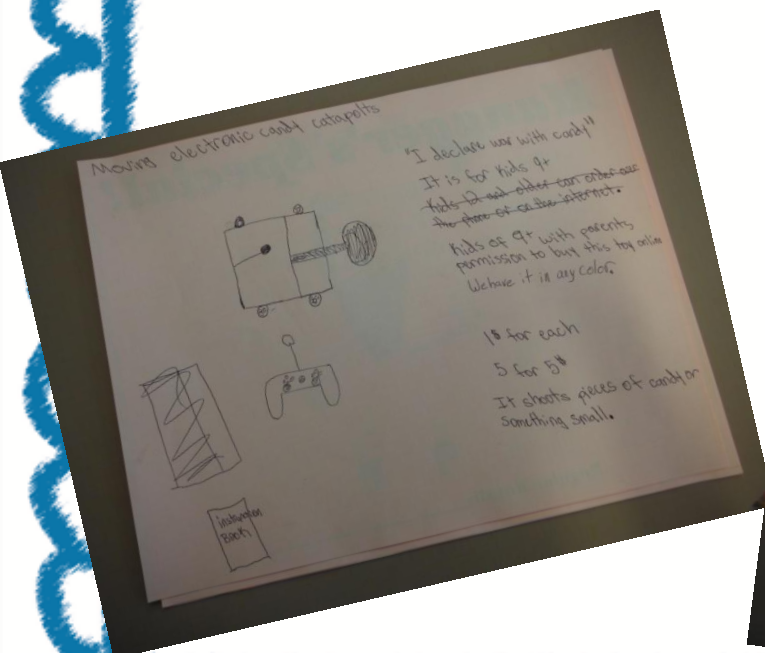 Moving electronic candy catapolts
"I declare war with candy"
It is for kids 9+
Kids 12 and older can order over
the phone or on the internet.
Kids of 9+ with parents
permission to buy this toy online
We have it in any color.
1$ for each
5 for 5$
It shoots pieces of candy or
something small.
BOOK